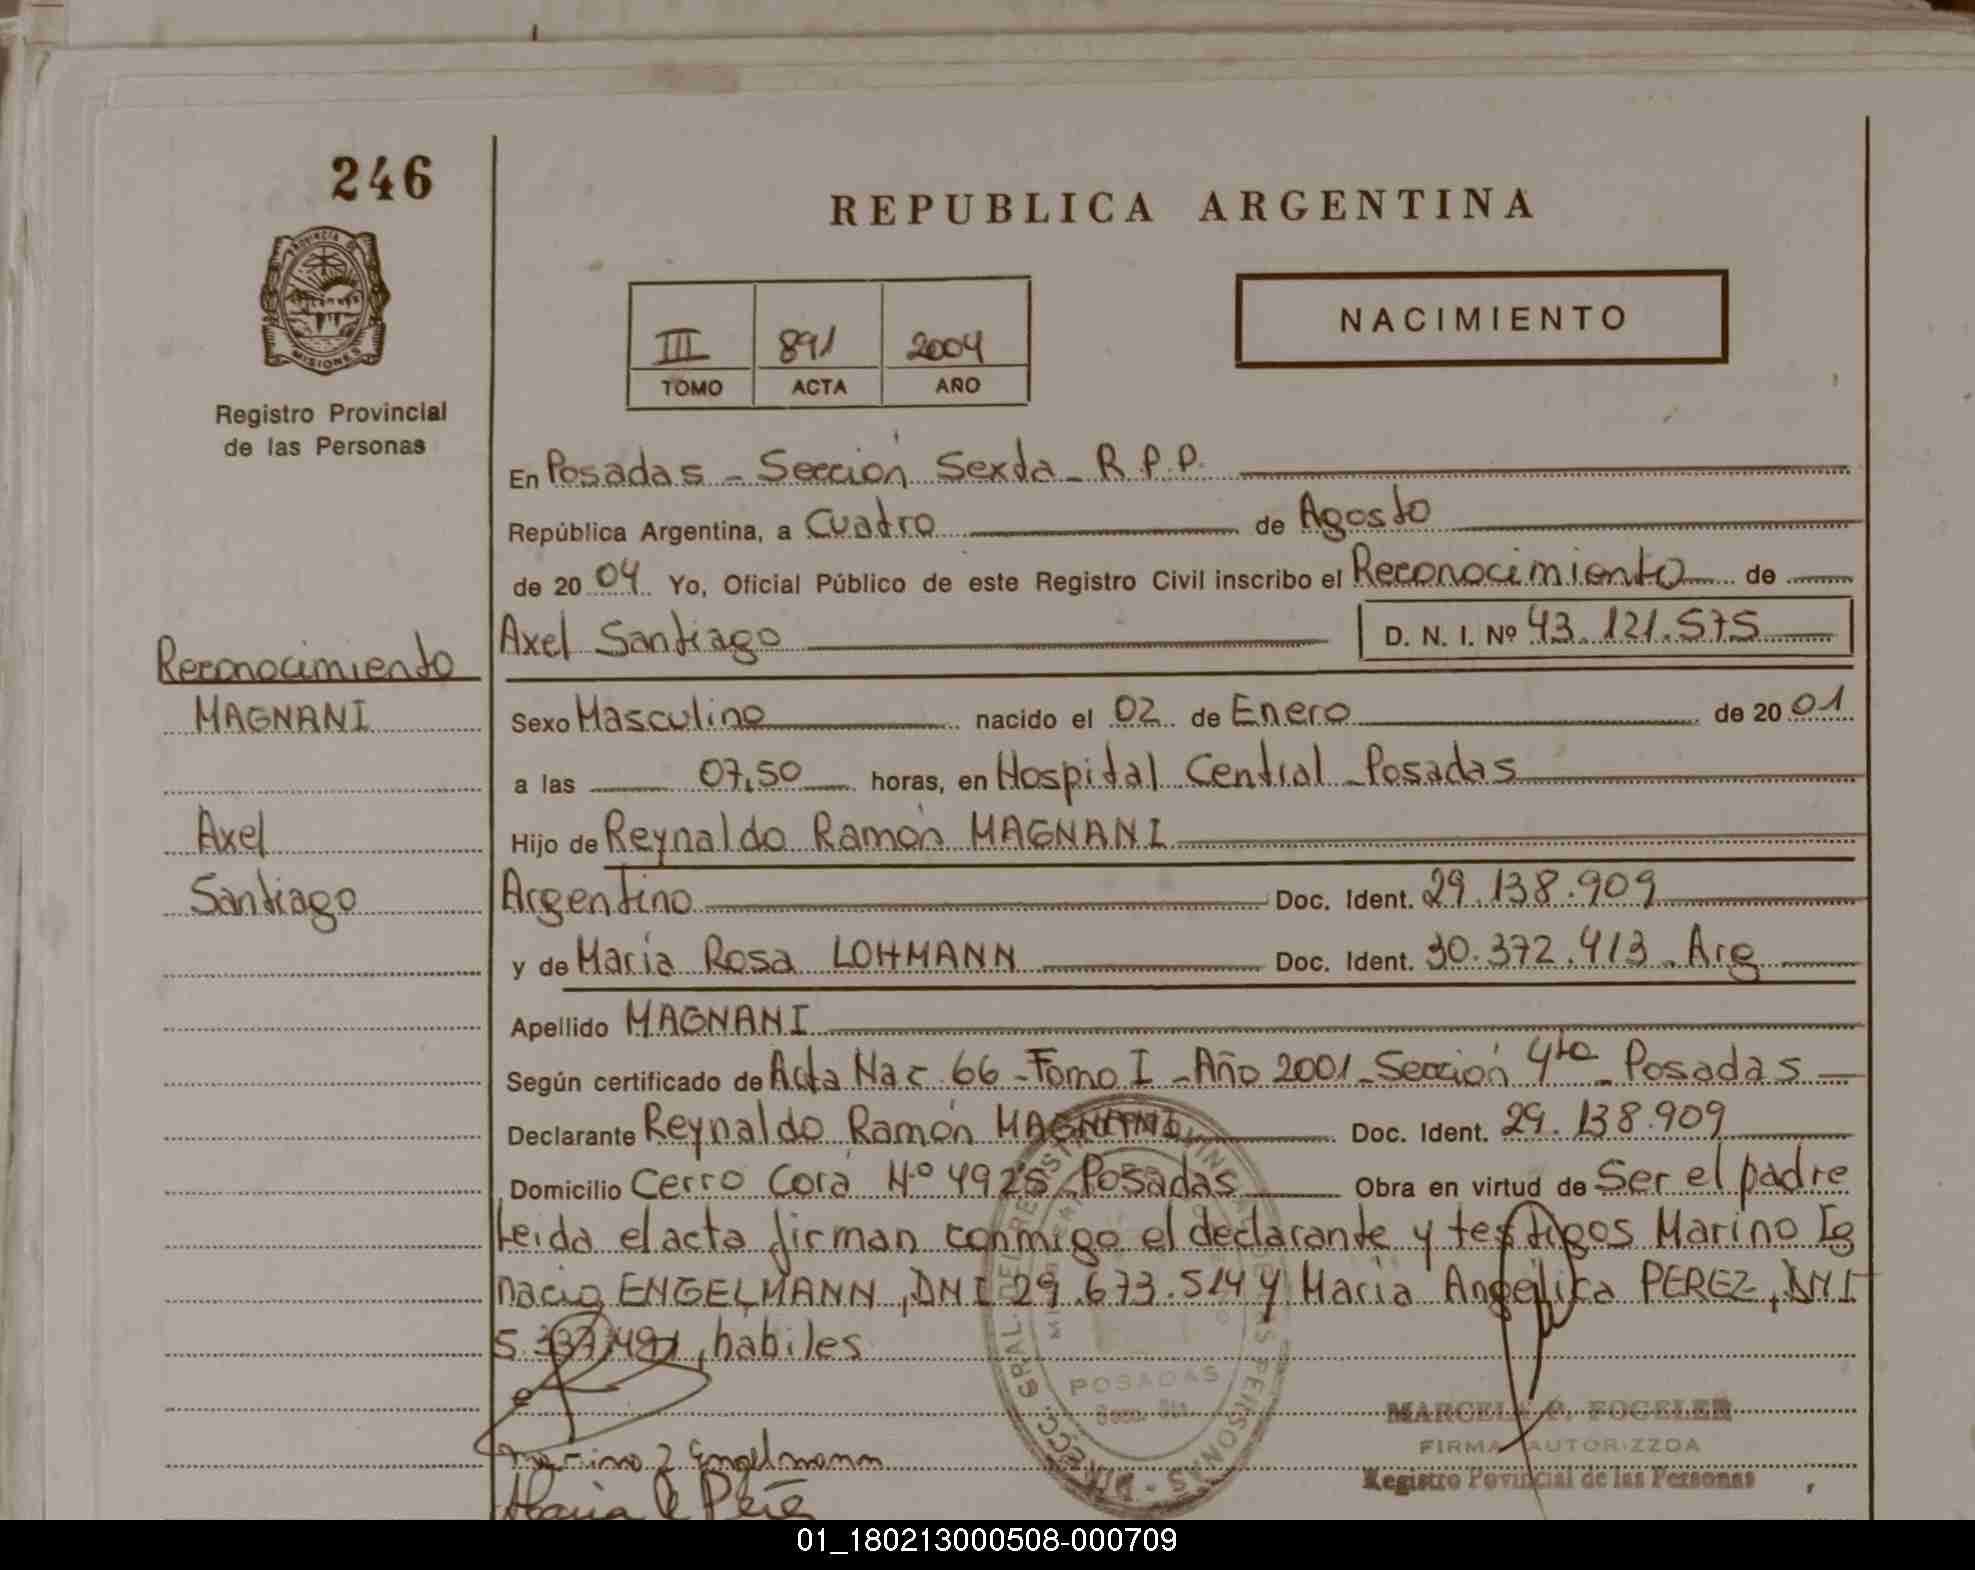 246
REPUBLICA ARGENTINA
PROVINCIA DE
MISIONES
Registro Provincial
de las Personas
III 891 2004
TOMO ACTA AÑO
NACIMIENTO
En Posadas - Sección Sexta - R.P.P.
República Argentina, a Cuatro de Agosto
de 2004 Yo, Oficial Público de este Registro Civil inscribo el Reconocimiento de
Axel Santiago D. N. I. Nº 43.121.575
Reconocimiento
MAGNANI
Axel
Santiago
Sexo Masculino nacido el 02 de Enero de 2001
a las 07,50 horas, en Hospital Central - Posadas
Hijo de Reynaldo Ramón MAGNANI
Argentino Doc. Ident. 29.138.909
y de María Rosa LOHMANN Doc. Ident. 30.372.413 - Arg
Apellido MAGNANI
Según certificado de Acta Nac 66 - Tomo I - Año 2001 - Sección 4ta - Posadas
Declarante Reynaldo Ramón MAGNANI Doc. Ident. 29.138.909
Domicilio Cerro Corá Nº 4925 - Posadas Obra en virtud de Ser el padre
Leida el acta firman conmigo el declarante y testigos Marino Ig
nacio ENGELMANN, DNI 29.673.514 y María Angélica PEREZ, DNI
5.337.491, habiles
POSADAS
Marino I Engelmann
MARCELA P. FOGELER
FIRMA AUTORIZZDA
Registro Povincial de las Personas
01_180213000508-000709